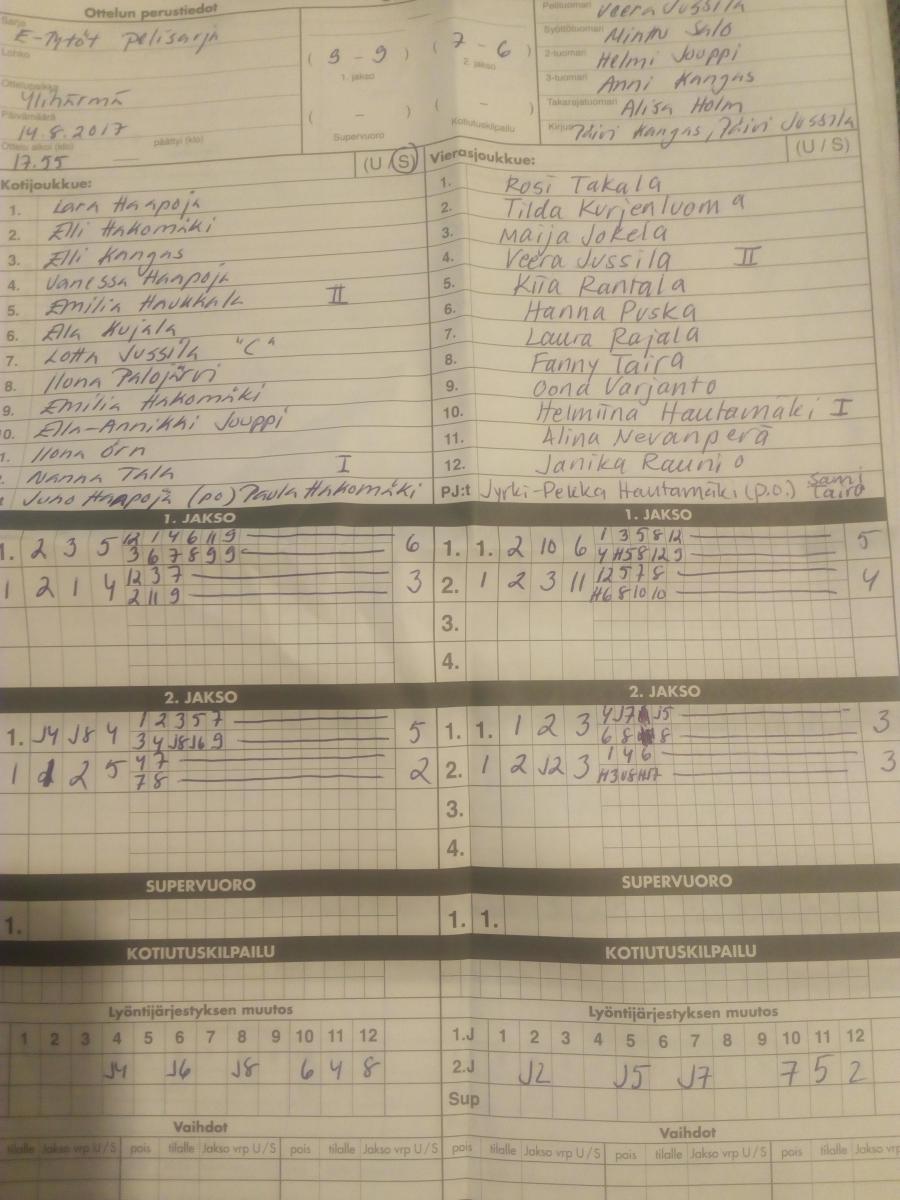 Ottelun perustiedot
Sarja
E-Tytöt pelisarja
Lohko
Ottelupaikka
Ylihärmä
Päivämäärä
14.8.2017
Ottelu alkoi (klo) päättyi (klo)
17.55
( 9 - 9 ) ( 7 - 6 )
1. jakso 2. jakso
( - ) ( - )
Supervuoro Kotiutuskilpailu
Pelituomari Veera Jussila
Syöttötuomari Minttu Salo
2-tuomari Helmi Jouppi
3-tuomari Anni Kangas
Takarajatuomari Alisa Holm
Päivi Kangas, Päivi Jussila
(U / S) (U / S)
Kotijoukkue:
1. Lara Haapoja
2. Elli Hakomäki
3. Elli Kangas
4. Vanessa Haapoja
5. Emilia Haukkala II
6. Ella Kujala
7. Lotta Jussila "C"
8. Ilona Palojärvi
9. Emilia Hakomäki
0. Ella-Annikki Jouppi
1. Ilona Örn
Nanna Tala I
Juho Haapoja (po) Paula Hakomäki
Vierasjoukkue:
1. Rosi Takala
2. Tilda Kurjenluoma
3. Maija Jokela
4. Veera Jussila II
5. Kiia Rantala
6. Hanna Puska
7. Laura Rajala
8. Fanny Taira
9. Oona Varjanto
10. Helmiina Hautamäki I
11. Alina Nevanperä
12. Janika Raunio
PJ:t Jyrki-Pekka Hautamäki (p.o.) Sami Taira
1. JAKSO 1. JAKSO
12 1 4 6 11 9
1. 2 3 5 6
3 6 7 8 9 9
12 3 7
1 2 1 4 3
2 11 9
1 3 5 8 12
1. 1. 2 10 6 5
12 5 7 8
2. 1 2 3 11 4
3.
4.
2. JAKSO 2. JAKSO
1 2 3 5 7
1. J4 J8 4 5
3 4 J8 J6 9
4 7
1 2 5 2
7 8
4 J7 J5
1. 1. 1 2 3 3
6 8 8
1 4 6
2. 1 2 J2 3 3
3.
4.
SUPERVUORO SUPERVUORO
1. 1. 1.
KOTIUTUSKILPAILU KOTIUTUSKILPAILU
Lyöntijärjestyksen muutos Lyöntijärjestyksen muutos
1 2 3 4 5 6 7 8 9 10 11 12
J4 J6 J8 6 4 8
1.J 1 2 3 4 5 6 7 8 9 10 11 12
2.J J2 J5 J7 7 5 2
Sup
Vaihdot Vaihdot
tilalle Jakso vrp U / S pois tilalle Jakso vrp U / S pois tilalle Jakso vrp U / S
pois tilalle Jakso vrp U / S pois tilalle Jakso vrp U / S pois tilalle Jakso vrp